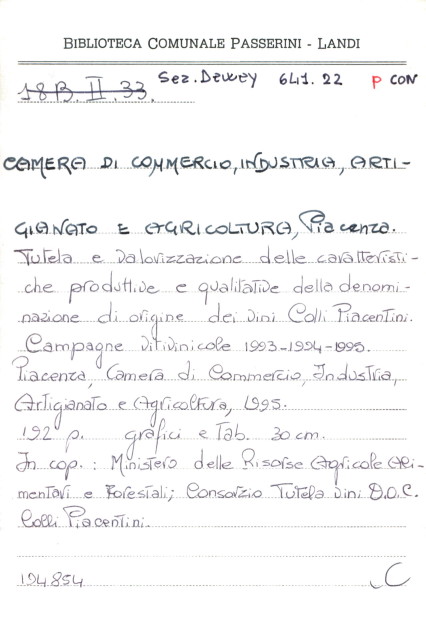 BIBLIOTECA COMUNALE PASSERINI - LANDI
18B. II. 33. Sez. Dewey 641. 22 P CON
CAMERA DI COMMERCIO, INDUSTRIA, ARTI-
GIANATO E AGRICOLTURA, Piacenza.
Tutela e valorizzazione delle caratteristi-
che produttive e qualitative della denomi-
nazione di origine dei vini Colli Piacentini.
Campagne vitivinicole 1993-1994-1995.
Piacenza, Camera di Commercio, Industria,
Artigianato e Agricoltura, 1995.
192 p. grafici e tab. 30 cm.
In cop.: Ministero delle Risorse Agricole Ali-
mentari e Forestali; Consorzio Tutela Vini D.O.C.
Colli Piacentini.
194854 C